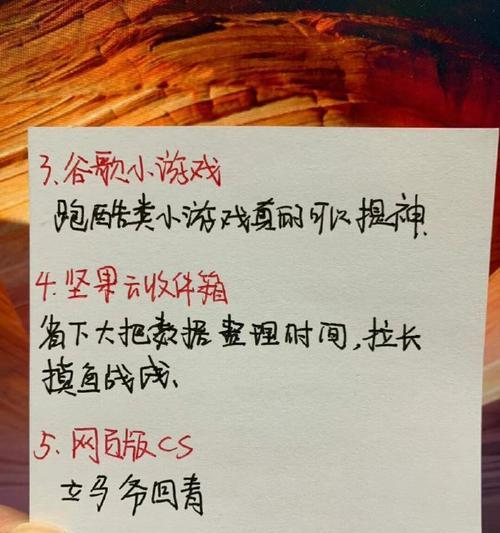 3.谷歌小游戏
跑酷类小游戏真的可以提神.
4.坚果云收件箱
省下大把数据整理时间,拉长
摸鱼战线.
5.网页版CS
立马爷回青